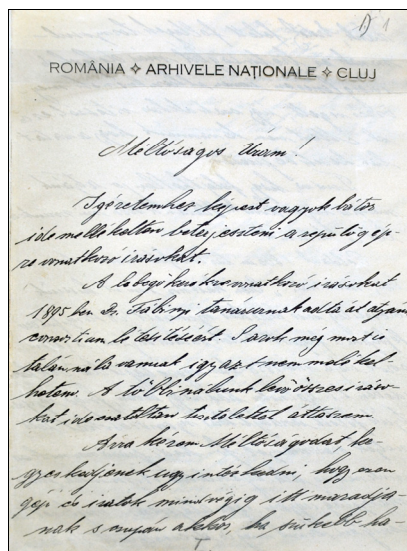 1
ROMÂNIA ✧ ARHIVELE NAȚIONALE ✧ CLUJ
Méltóságos Uram!
Igéretemhez képest vagyok bátor
ide mellékelten beterjeszteni a repülőgép-
re vonatkozó irásokat.
A lobogó vonatkozó irásokat
1895 ben Dr. Fábinyi tanárnak adta át atyám
létesítésért. S azok még most is
talán nála vannak igy azt nem mellékel-
hetem. A többi nálunk levő összes iráso-
kat ide csatoltan tisztelettel átteszem.
Arra kérem Méltóságodat, ke-
gyeskedjenek ugy intézkedni, hogy ezen
gép és iratok mindvégig itt maradja-
nak s csupán akkor, ha szűkebb ha-